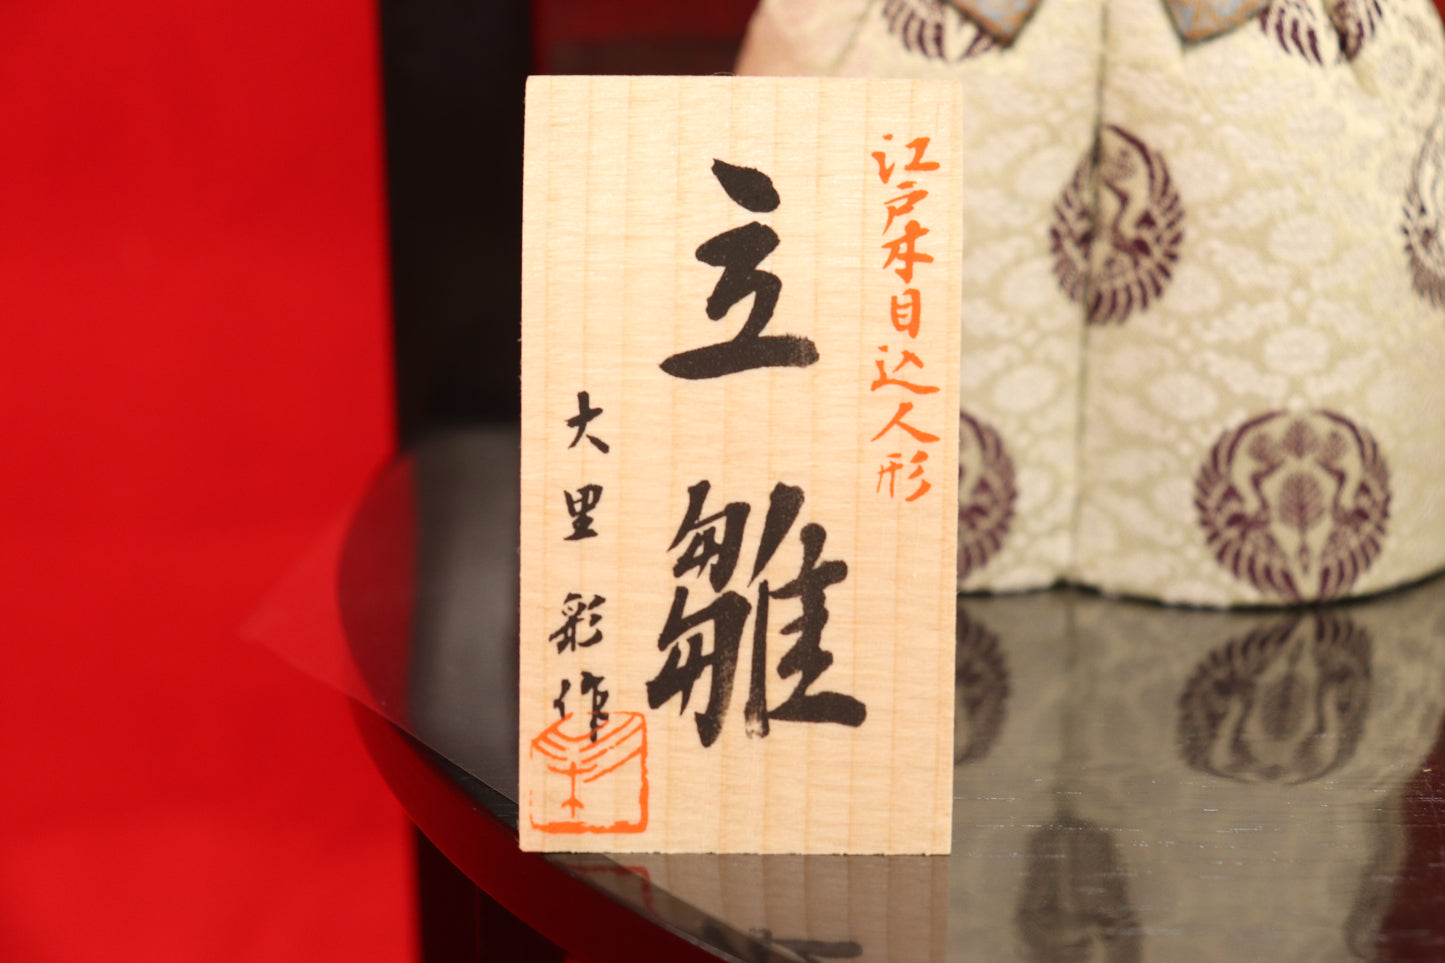 江戸木目込人形
立雛
大里彩作